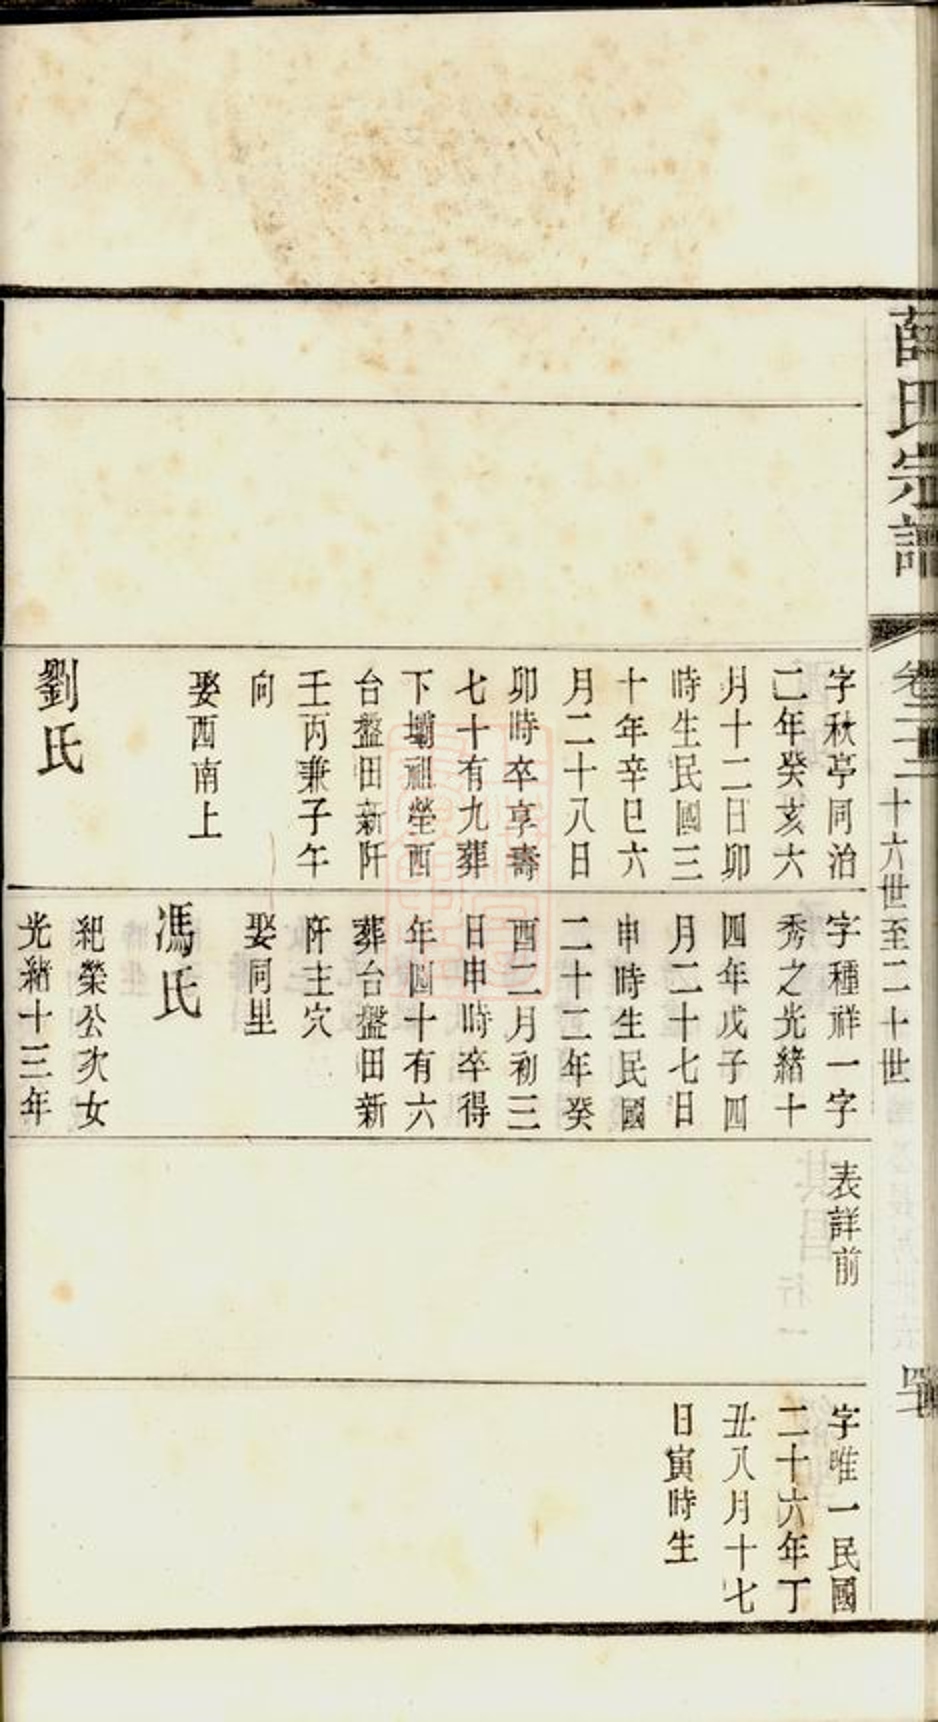 薛氏宗譜
卷二三
十六世至二十世
字秋亭同治
二年癸亥六
月十二日卯
時生民國三
十年辛巳六
月二十八日
卯時卒享壽
七十有九葬
下壩祖塋西
台盤田新阡
壬丙兼子午
向
娶西南上
劉氏
字種祥一字
秀之光緒十
四年戊子四
月二十七日
申時生民國
二十二年癸
酉二月初三
日申時卒得
年四十有六
葬台盤田新
阡主穴
娶同里
馮氏
紀榮公次女
光緒十三年
表詳前
字唯一民國
二十六年丁
丑八月十七
日寅時生